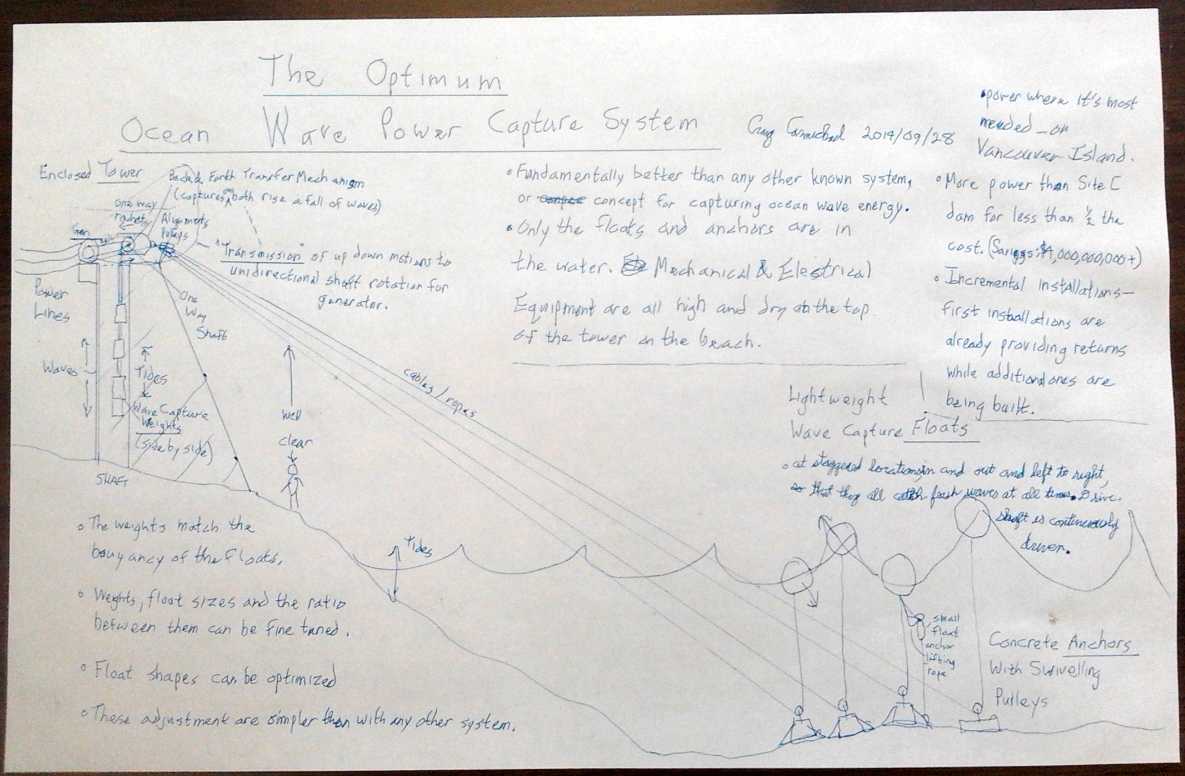 The Optimum
Ocean Wave Power Capture System
Craig Carmichael 2014/09/28
• power where it's most
needed - on
Vancouver Island.
• More power than Site C
dam for less than 1/2 the
cost. (Savings: $4,000,000,000+)
• Incremental installations-
first installations are
already providing returns
while additional ones are
being built.
• Fundamentally better than any other known system,
or concept for capturing ocean wave energy.
• Only the floats and anchors are in
the water. Mechanical & Electrical
Equipment are all high and dry on the top
of the tower on the beach.
Enclosed Tower
Back & Forth Transfer Mechanism
(captures both rise & fall of waves)
one way
Gen
Alignment
Pulleys
"Transmission" of up down motions to
unidirectional shaft rotation for
generator.
Power
Lines
One
Way
Shaft
Waves
Tides
Wave Capture
Weights
(side by side)
SHAFT
Well
clear
cables/ropes
Lightweight
Wave Capture Floats
• at staggered locations, in and out and left to right,
so that they all catch fresh waves at all times. Drive
shaft is continuously
driven.
• The weights match the
bouyancy of the floats.
• Weights, float sizes and the ratio
between them can be fine tuned.
• Float shapes can be optimized
• These adjustment are simpler than with any other system.
Tides
small
float
anchor
lifting
rope
Concrete Anchors
With Swivelling
Pulleys